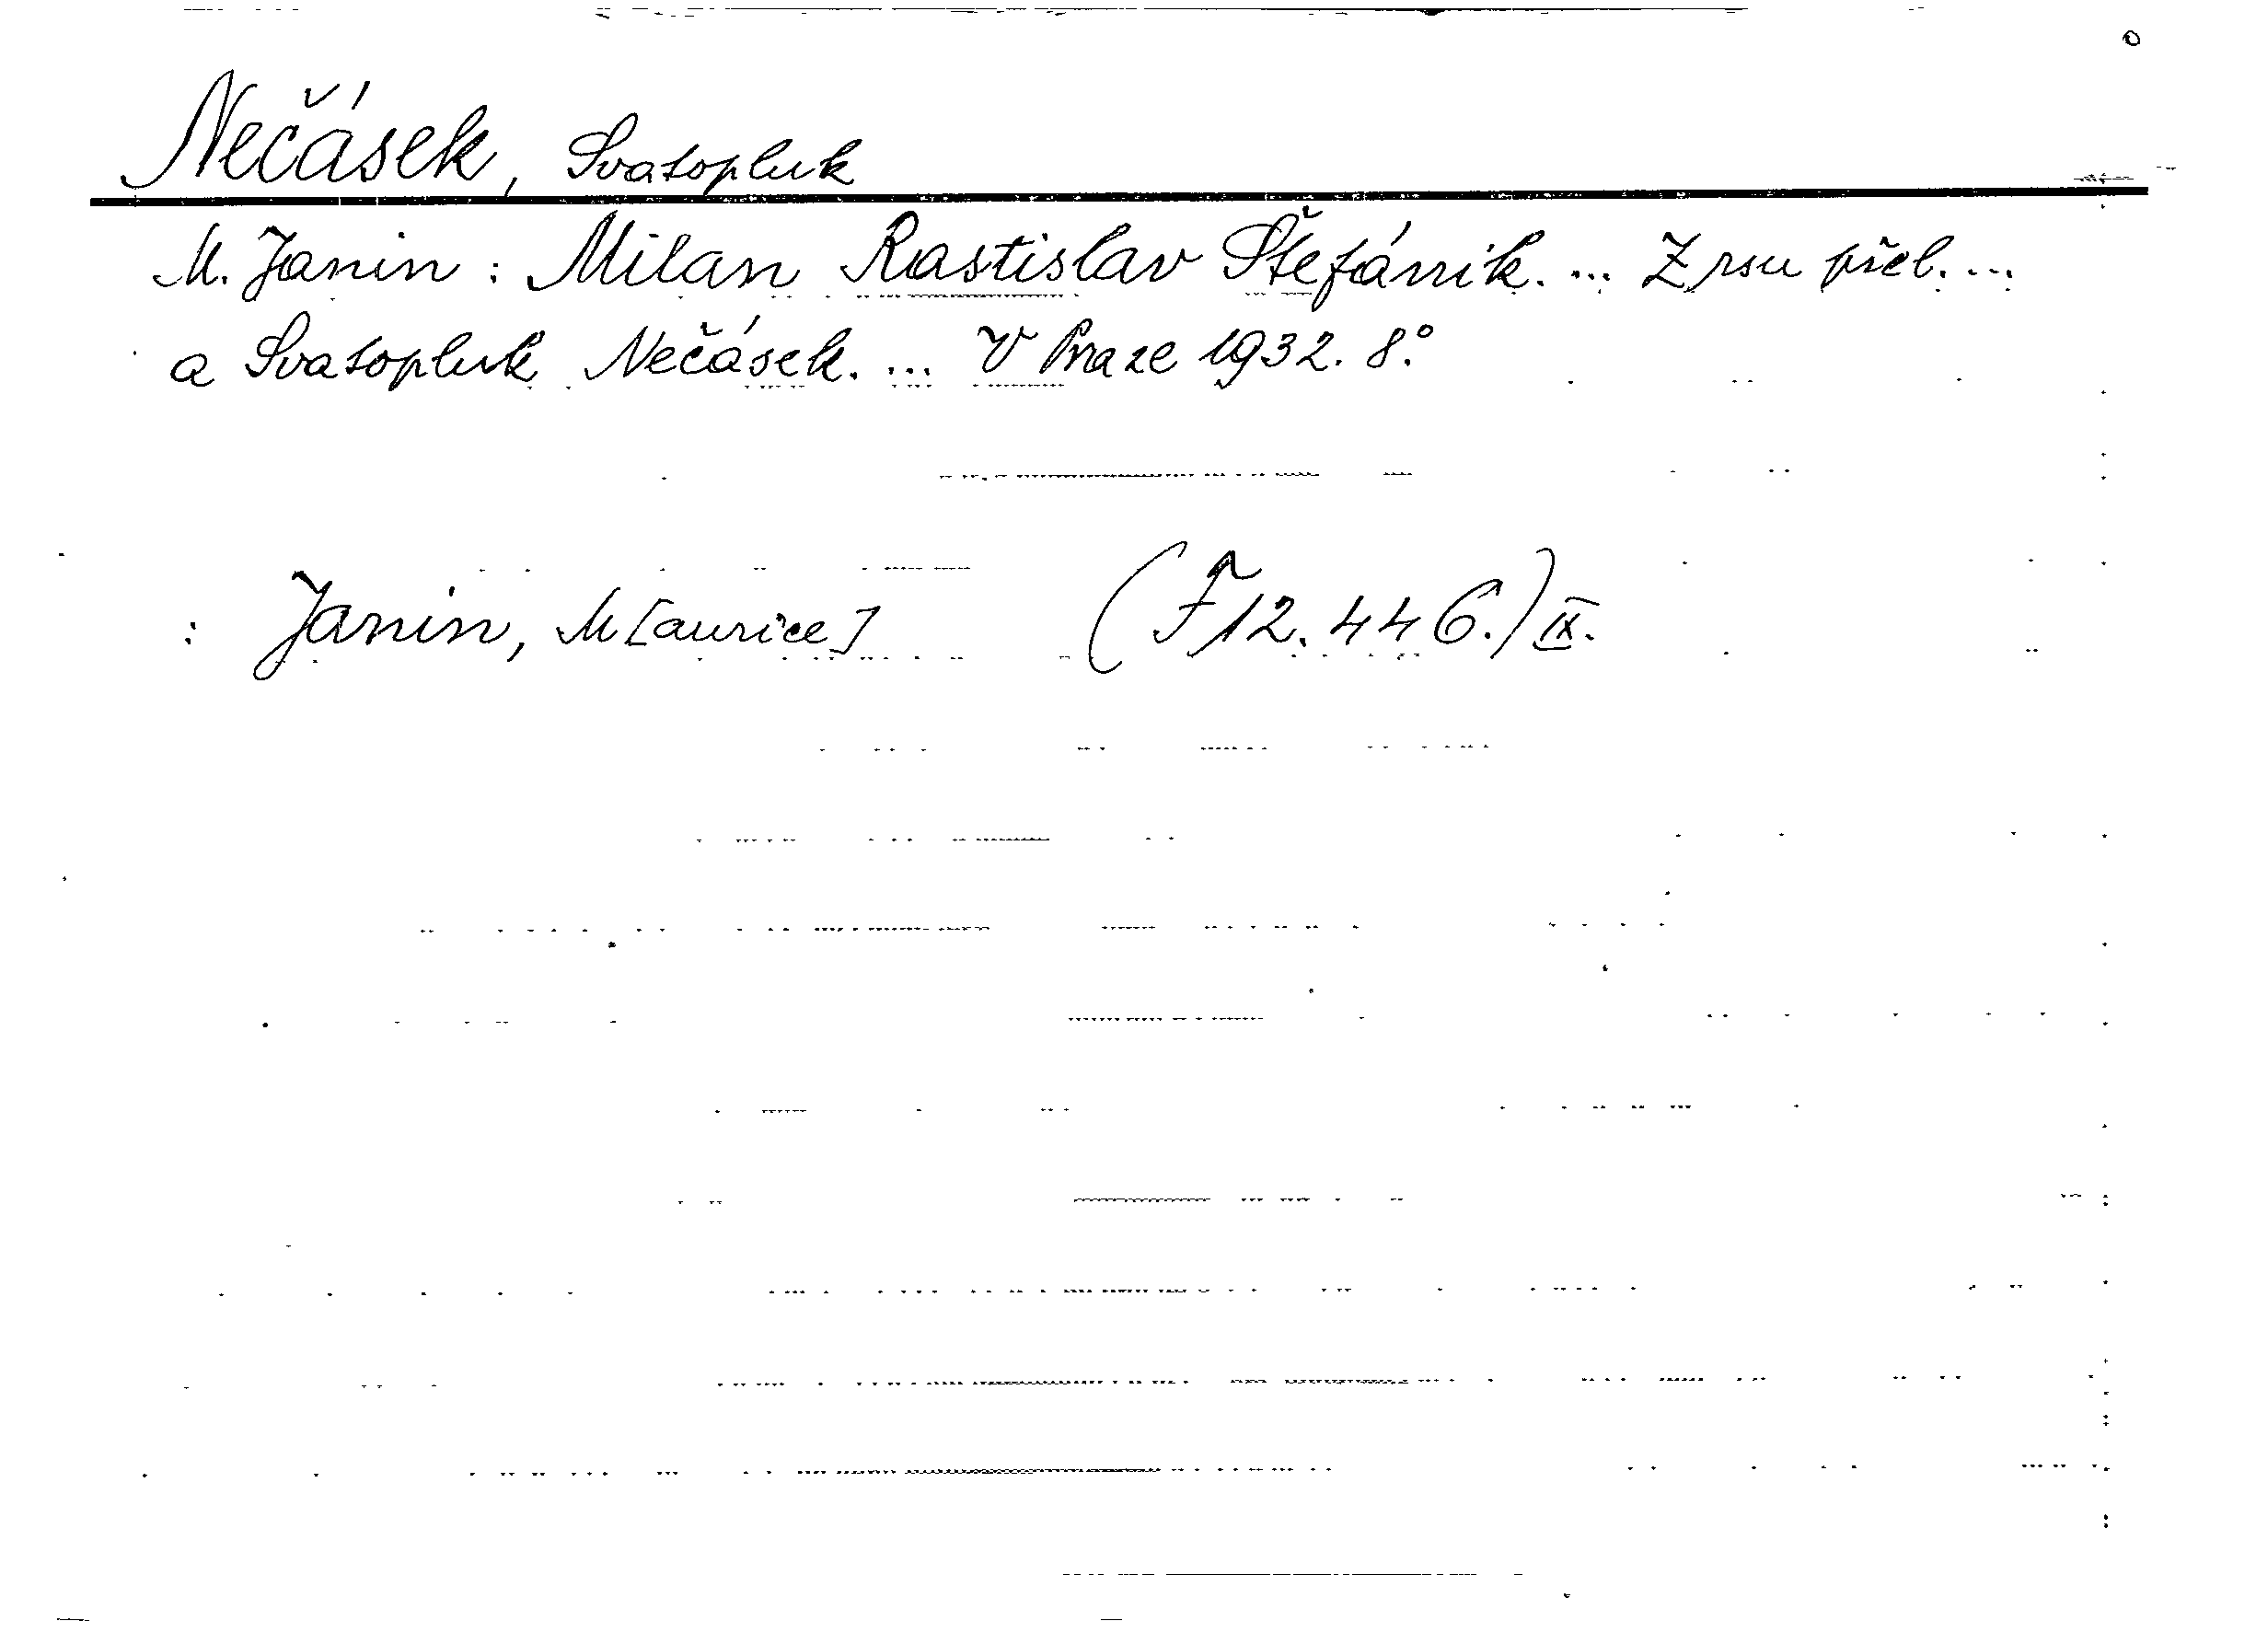 Nečásek, Svatopluk
M. Janin: Milan Rastislav Štefánik. ... Z rsu přel. ...
a Svatopluk Nečásek. ... V Praze 1932. 8.°
: Janin, M[aurice] (F 12.446.) IX.